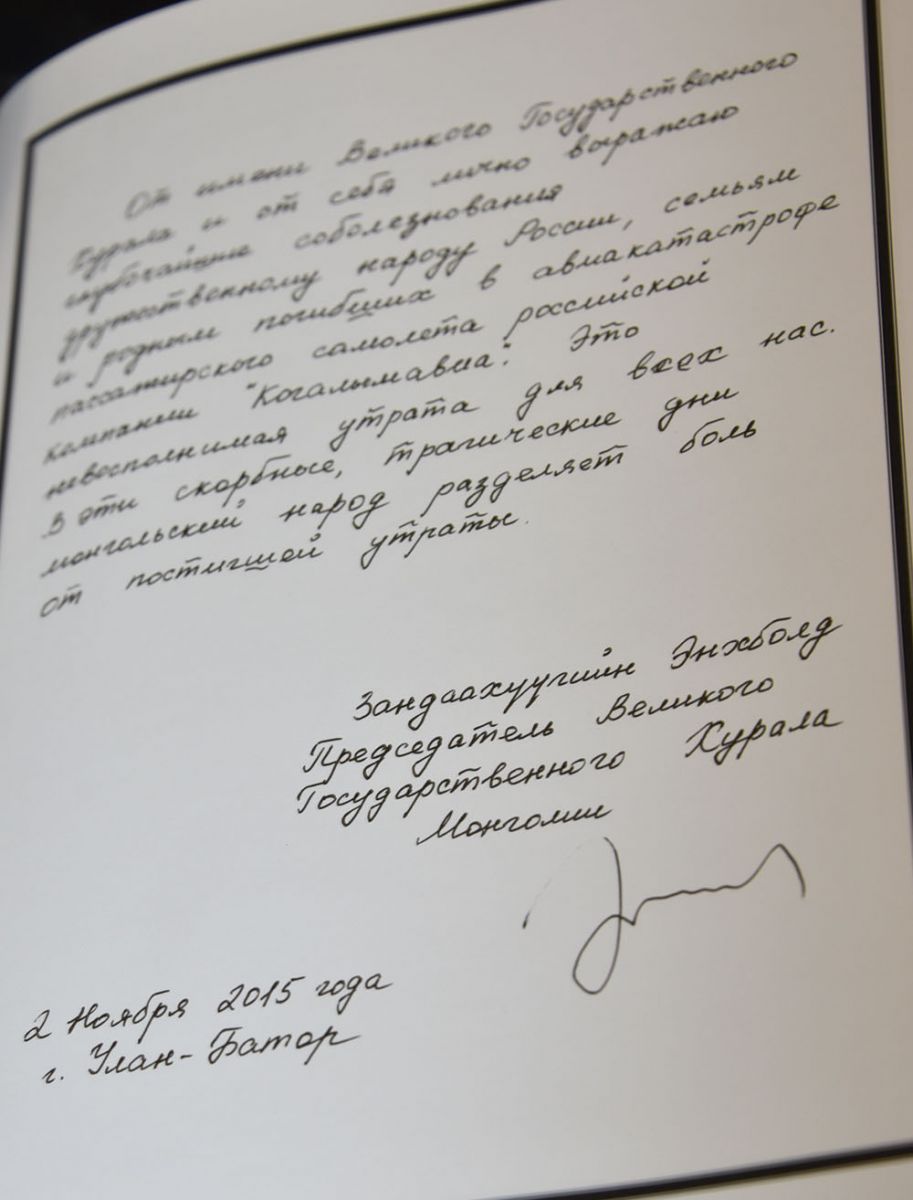 От имени Великого Государственного
Хурала и от себя лично выражаю
глубочайшие соболезнования
дружественному народу России, семьям
и родным погибших в авиакатастрофе
пассажирского самолета российской
компании "Когалымавиа". Это
невосполнимая утрата для всех нас.
В эти скорбные, трагические дни
монгольский народ разделяет боль
от постигшей утраты.
Зандаахуугийн Энхболд
Председатель Великого
Государственного Хурала
Монголии
2 Ноября 2015 года
г. Улан-Батор